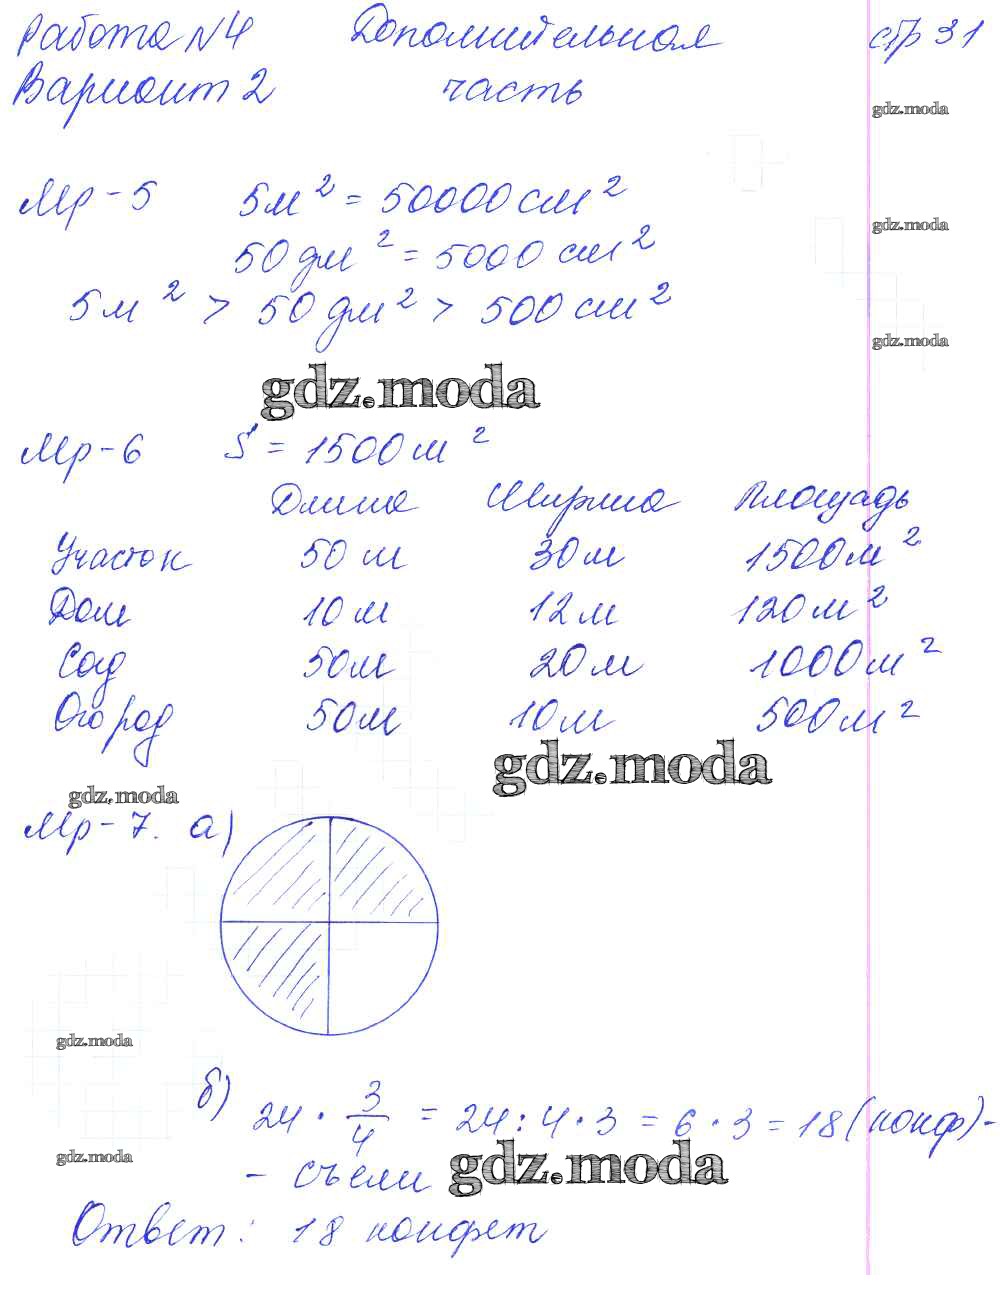 Работа №4 Дополнительная стр 31
Вариант 2 часть
gdz.moda
Мр-5 5м² = 50000 см²
gdz.moda
50 дм² = 5000 см²
5м² > 50 дм² > 500 см²
gdz.moda
gdz.moda
Мр-6 S = 1500 м²
Длина Ширина Площадь
Участок 50 м 30 м 1500 м²
Дом 10 м 12 м 120 м²
Сад 50 м 20 м 1000 м²
Огород 50 м 10 м 500 м²
gdz.moda
gdz.moda
Мр-7. а)
gdz.moda
б) 24 · 3/4 = 24 : 4 · 3 = 6 · 3 = 18 (конф) -
gdz.moda
- съели
gdz.moda
Ответ: 18 конфет